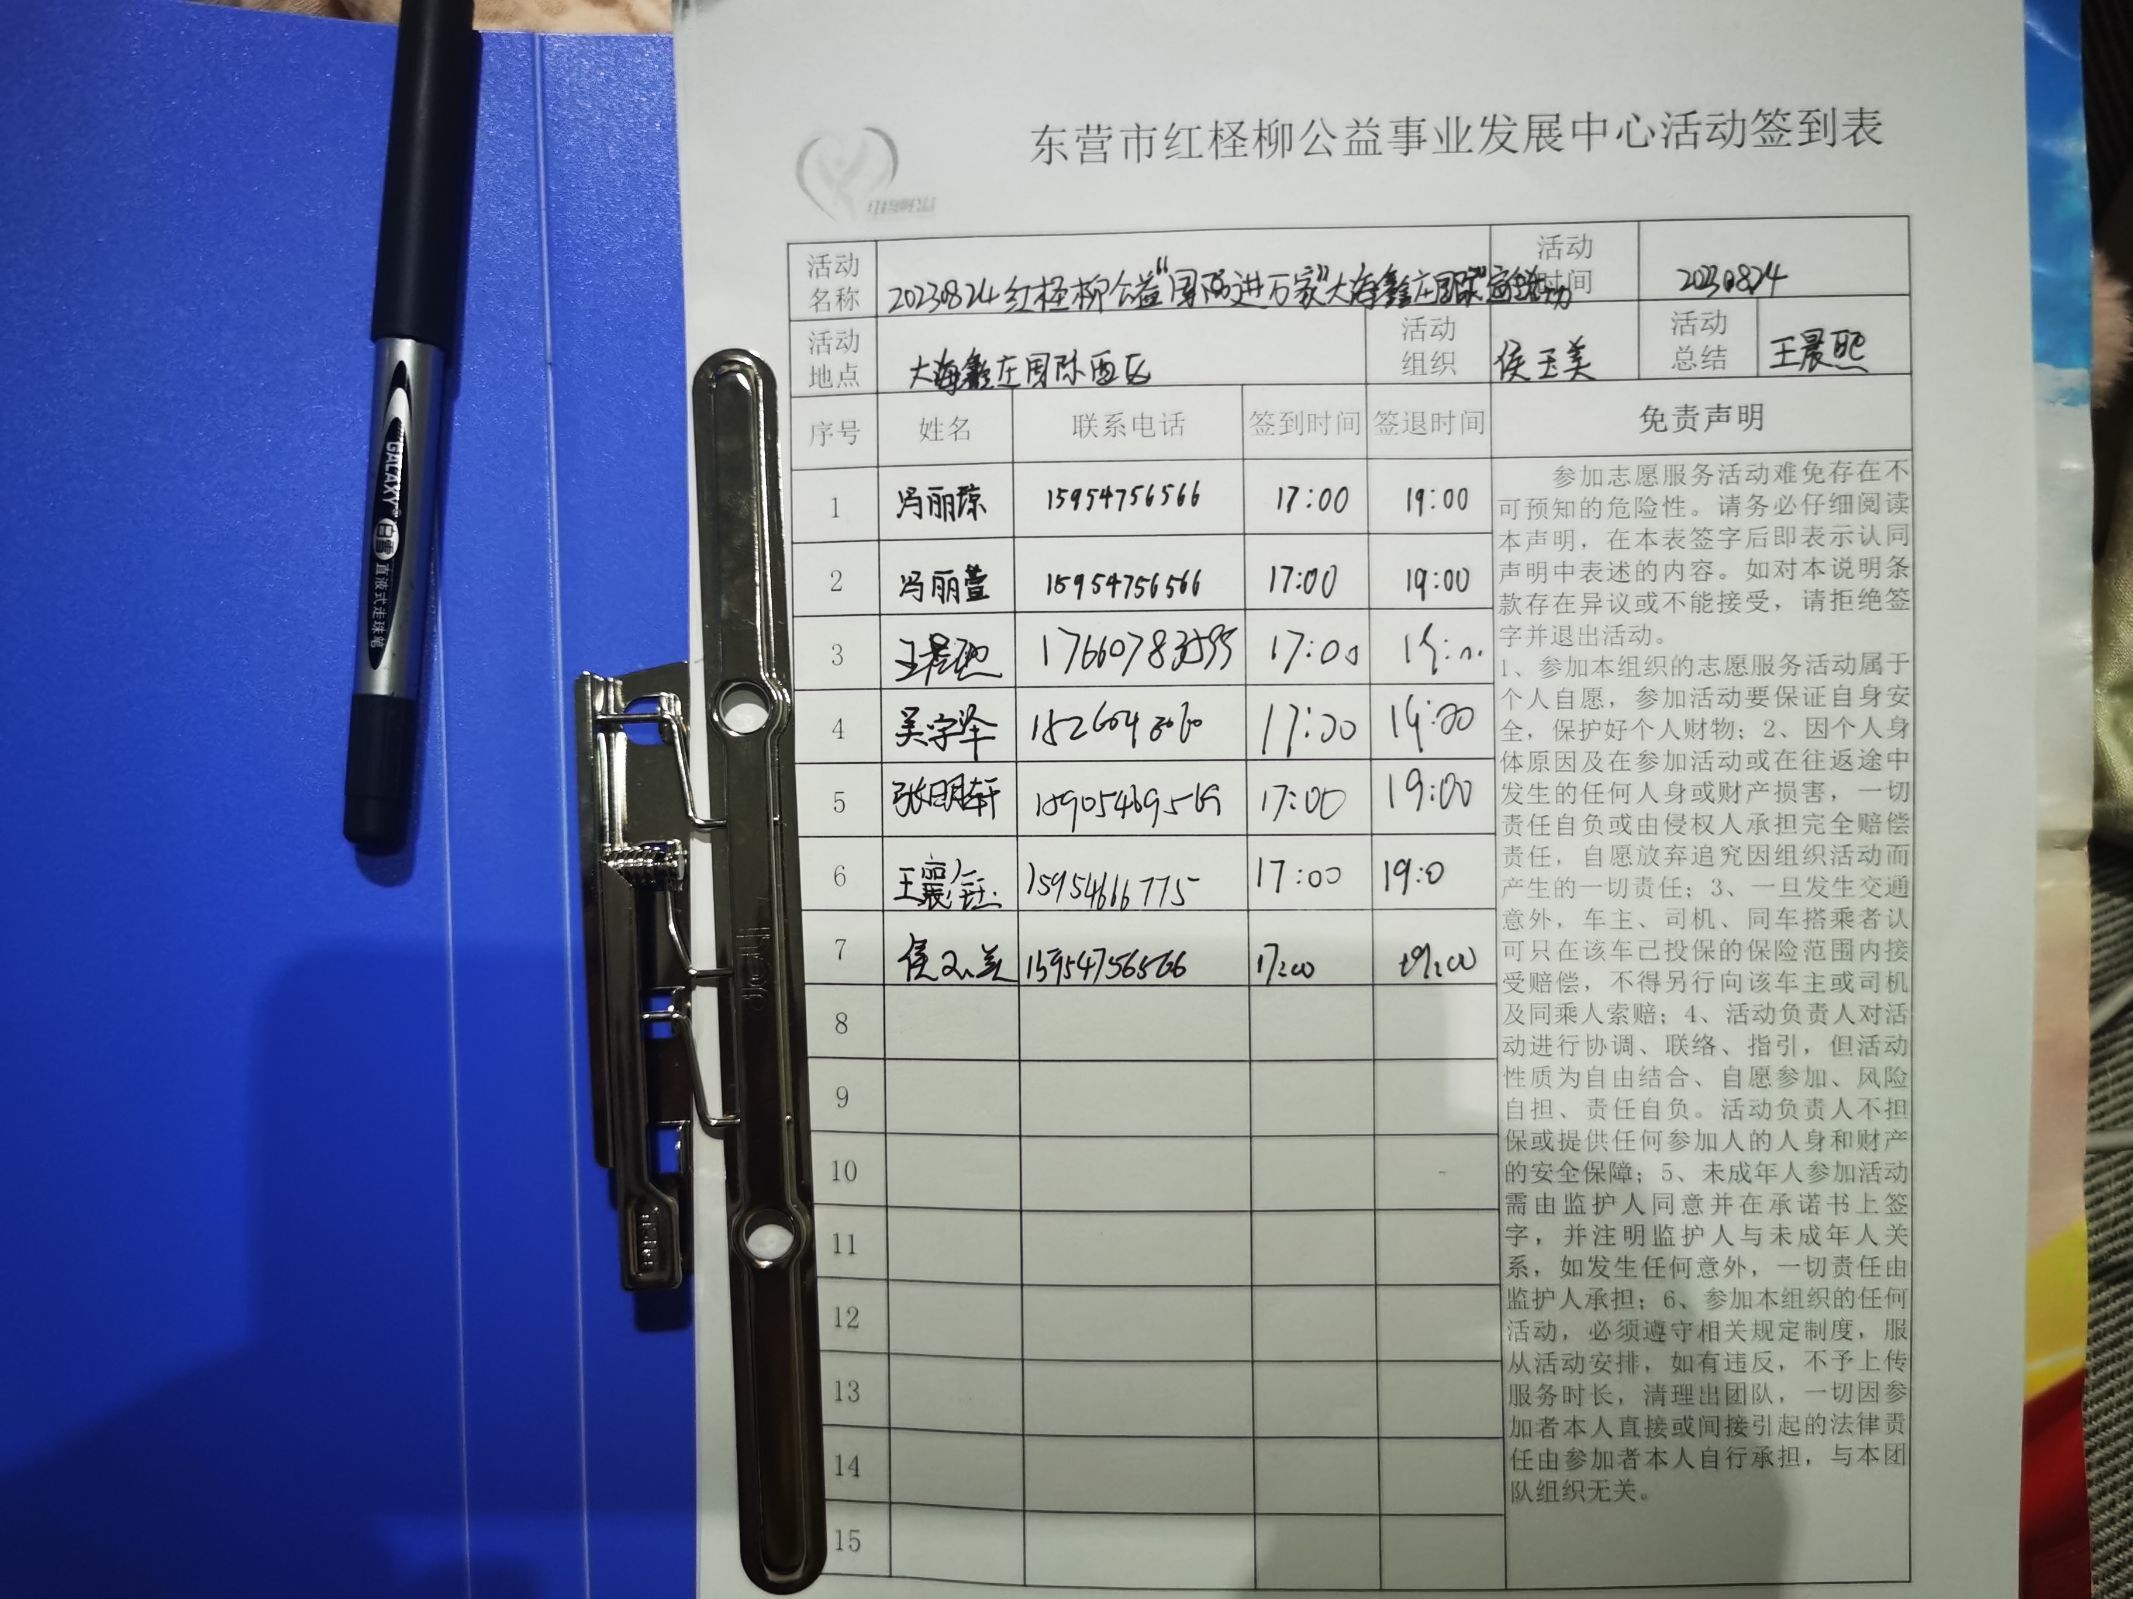 东营市红柽柳公益事业发展中心活动签到表
活动名称 20230824红柽柳公益 进万家"大海鑫庄国际 活动时间 20230824
活动地点 大海鑫庄国际西区 活动组织 侯玉美 活动总结 王晨熙
序号 姓名 联系电话 签到时间 签退时间 免责声明
1 冯丽琼 15954756566 17:00 19:00
2 冯丽萱 15954756566 17:00 19:00
3 王晨熙 17:00
4 吴宇泽 17:00 19:00
5 张明轩 17:00 19:00
6 15954666775 17:00 19:0
7 侯玉美 15954756566 17:00 19:00
8
9
10
11
12
13
14
15
参加志愿服务活动难免存在不
可预知的危险性。请务必仔细阅读
本声明，在本表签字后即表示认同
声明中表述的内容。如对本说明条
款存在异议或不能接受，请拒绝签
字并退出活动。
1、参加本组织的志愿服务活动属于
个人自愿，参加活动要保证自身安
全，保护好个人财物；2、因个人身
体原因及在参加活动或在往返途中
发生的任何人身或财产损害，一切
责任自负或由侵权人承担完全赔偿
责任，自愿放弃追究因组织活动而
产生的一切责任；3、一旦发生交通
意外，车主、司机、同车搭乘者认
可只在该车已投保的保险范围内接
受赔偿，不得另行向该车主或司机
及同乘人索赔；4、活动负责人对活
动进行协调、联络、指引，但活动
性质为自由结合、自愿参加、风险
自担、责任自负。活动负责人不担
保或提供任何参加人的人身和财产
的安全保障；5、未成年人参加活动
需由监护人同意并在承诺书上签
字，并注明监护人与未成年人关
系，如发生任何意外，一切责任由
监护人承担；6、参加本组织的任何
活动，必须遵守相关规定制度，服
从活动安排，如有违反，不予上传
服务时长，清理出团队，一切因参
加者本人直接或间接引起的法律责
任由参加者本人自行承担，与本团
队组织无关。
GALAXY
白雪
直液式走珠笔